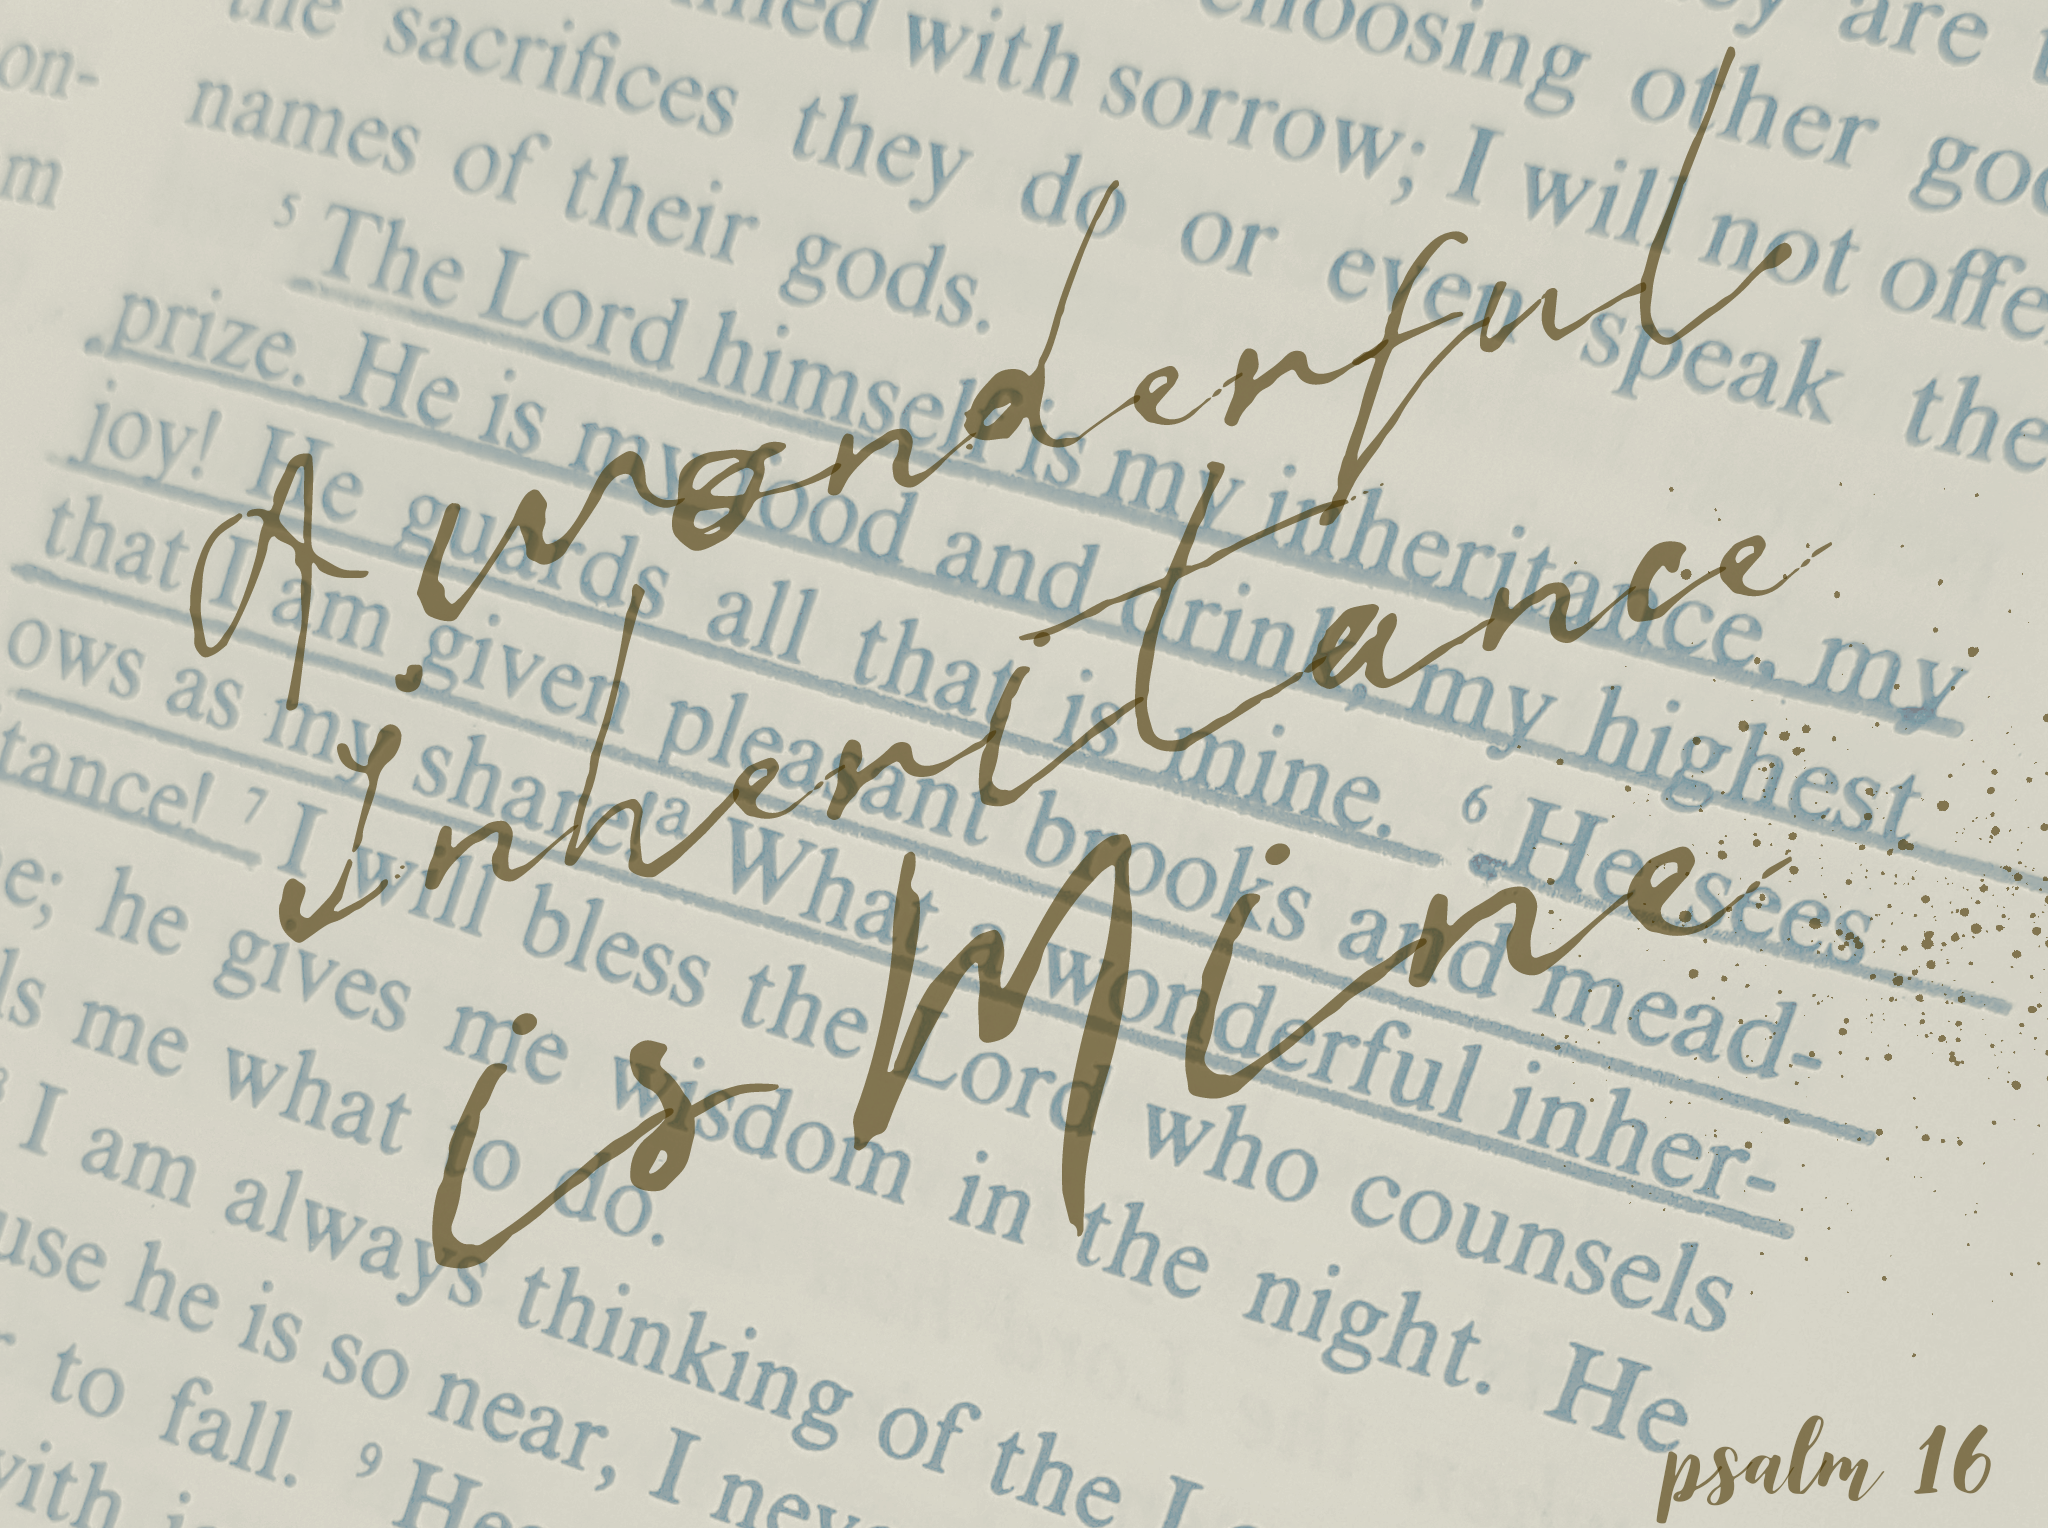 are
choosing other
with sorrow; I will not
the sacrifices they do or even speak the
names of their gods.
5 The Lord himself is my inheritance, my
prize. He is my food and drink, my highest
joy! He guards all that is mine. 6 He sees
that I am given pleasant brooks and mead-
ows as my share!a What a wonderful inher-
tance! 7 I will bless the Lord who counsels
e; he gives me wisdom in the night. He
ls me what to do.
8 I am always thinking of the
use he is so near, I
to fall. 9
with
A wonderful
Inheritance
is Mine
psalm 16